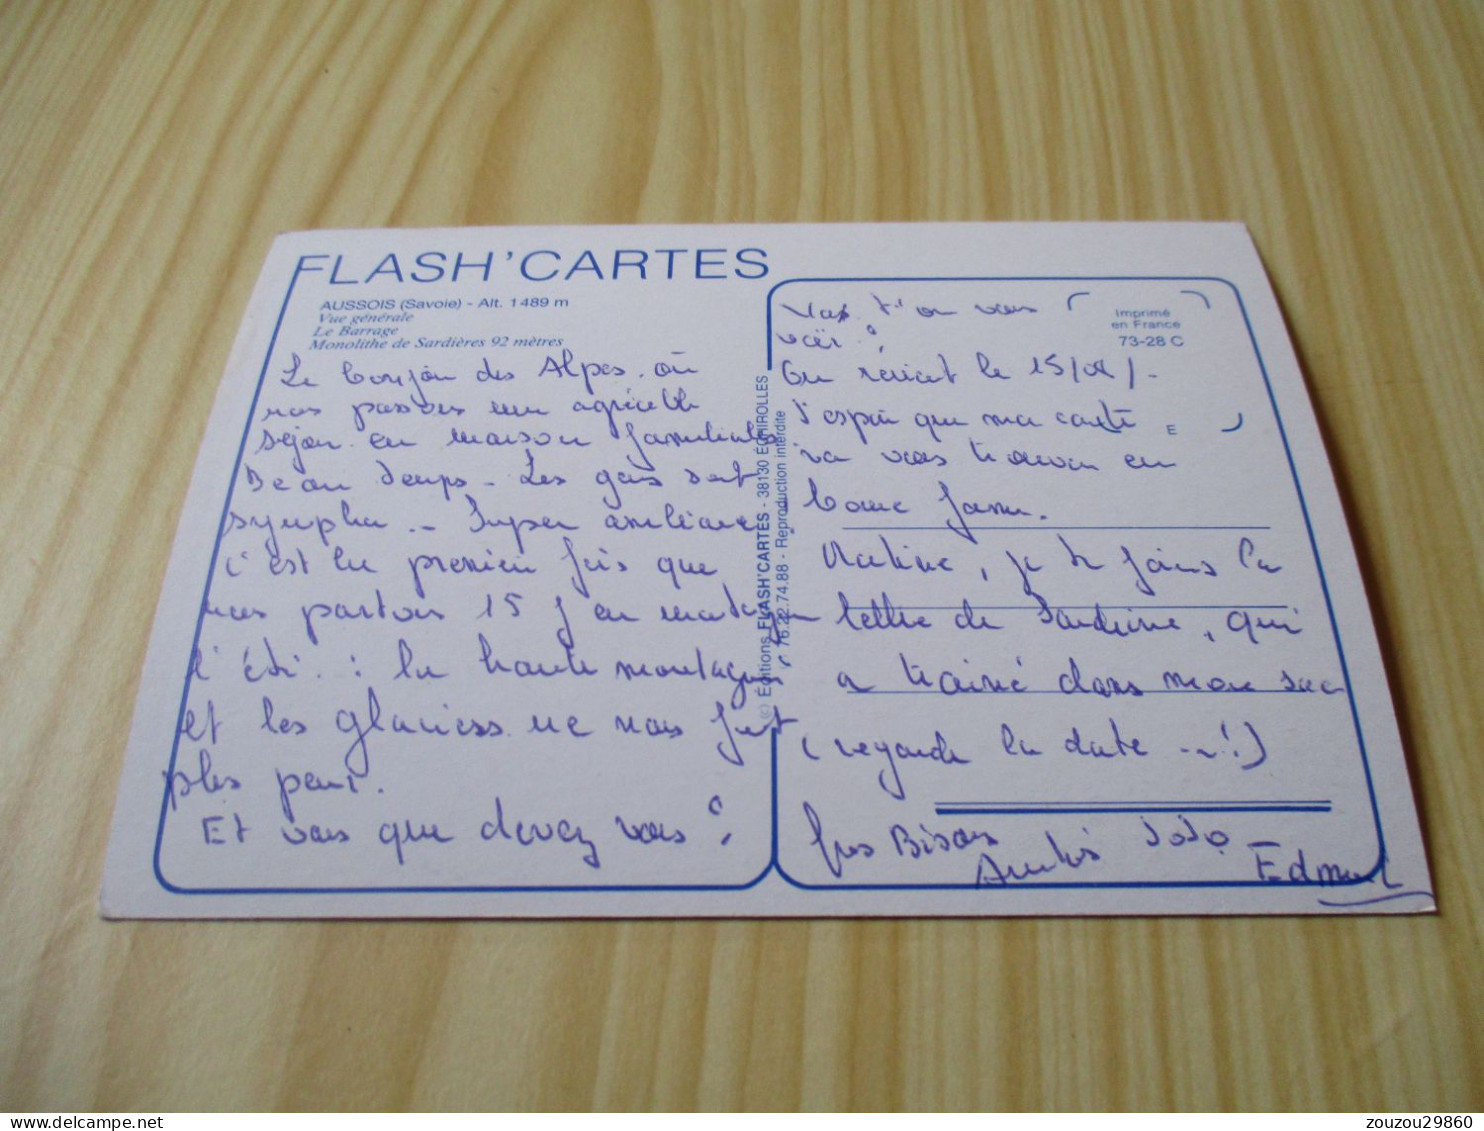 FLASH'CARTES
AUSSOIS (Savoie) - Alt. 1489 m
Vue générale
Le Barrage
Monolithe de Sardières 92 mètres
Le bonjour des Alpes où
nous passons un agréable
séjour en maison familiale
Beau temps - Les gens sont
sympha - Super ambiance
C'est la première fois que
nous partons 15 j en montagne
l'été : la haute montagne
et les glaciers ne nous font
plus peur.
Et vous que devez vous ?
© Éditions FLASH'CARTES - 38130 ÉCHIROLLES
76.22.74.88 - Reproduction interdite
Imprimé
en France
73-28 C
E
Vas t'on vous
voir ?
On revient le 15/08/-
J'espère que ma carte
va vous trouver en
bonne forme.
je te joins la
lettre de Sandrine, qui
a trainé dans mon sac
(regarde la date ...!)
Gros Bisous
Jojo
Edmond
zouzou29860